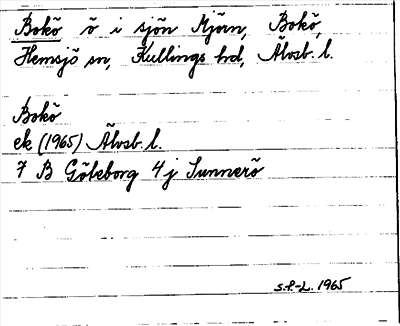 Bokö ö i sjön Mjörn, Bokö,
Hemsjö sn, Kullings hd, Älvsb. l.
Bokö
ek (1965) Älvsb. l.
7 B Göteborg 4 j Sunnerö
S.P-L. 1965